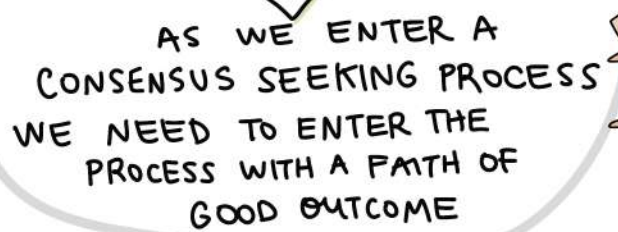 AS WE ENTER A
CONSENSUS SEEKING PROCESS
WE NEED TO ENTER THE
PROCESS WITH A FAITH OF
GOOD OUTCOME